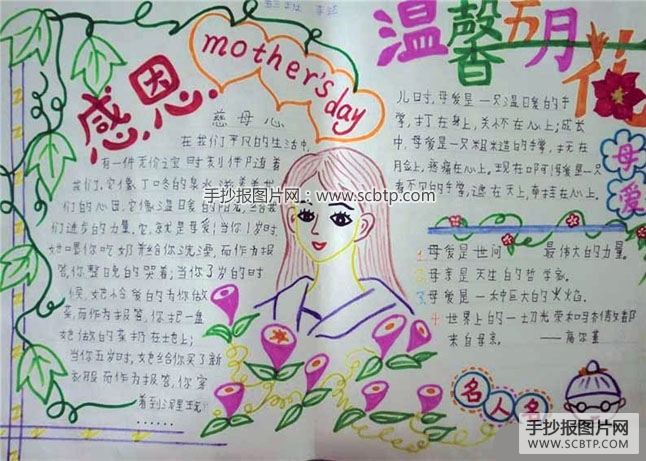 感恩
mother's
day
温馨五月花
慈母心
在我们平凡的生活中,
有一件无价之宝时刻伴随着
我们,它像丁冬的泉水滋
们的心田,它像温日爱的阳光,给我
们进步的力量,它,就是母爱!当你1岁时,
她喂你吃奶 给你洗澡,而作为报
答,你整日晚的哭着;当你3岁的时
候,她 爱的为你做
菜,而作为报答,你把一盘
她做的菜扔在地上;
当你五岁时,她给你买了新
衣服而作为报答,你穿
着到泥
......
儿日时,母爱是一只温日爱的手
掌,打在身上,关怀在心上;成长
中,母爱是一只粗糙的手掌,扶在
疼痛在心上,现在 母爱是一只
看不见的手掌,遮在天上,牵挂在心上。
母爱
1.母爱是世间 最伟大的力量。
2.母亲是天生的哲学家。
3.母爱是一种巨大的火焰。
4 世界上的一切光荣和 都
来自母亲。 ——高尔基
名人名
手抄报图片网：www.scbtp.com
手抄报图片网
WWW.SCBTP.COM